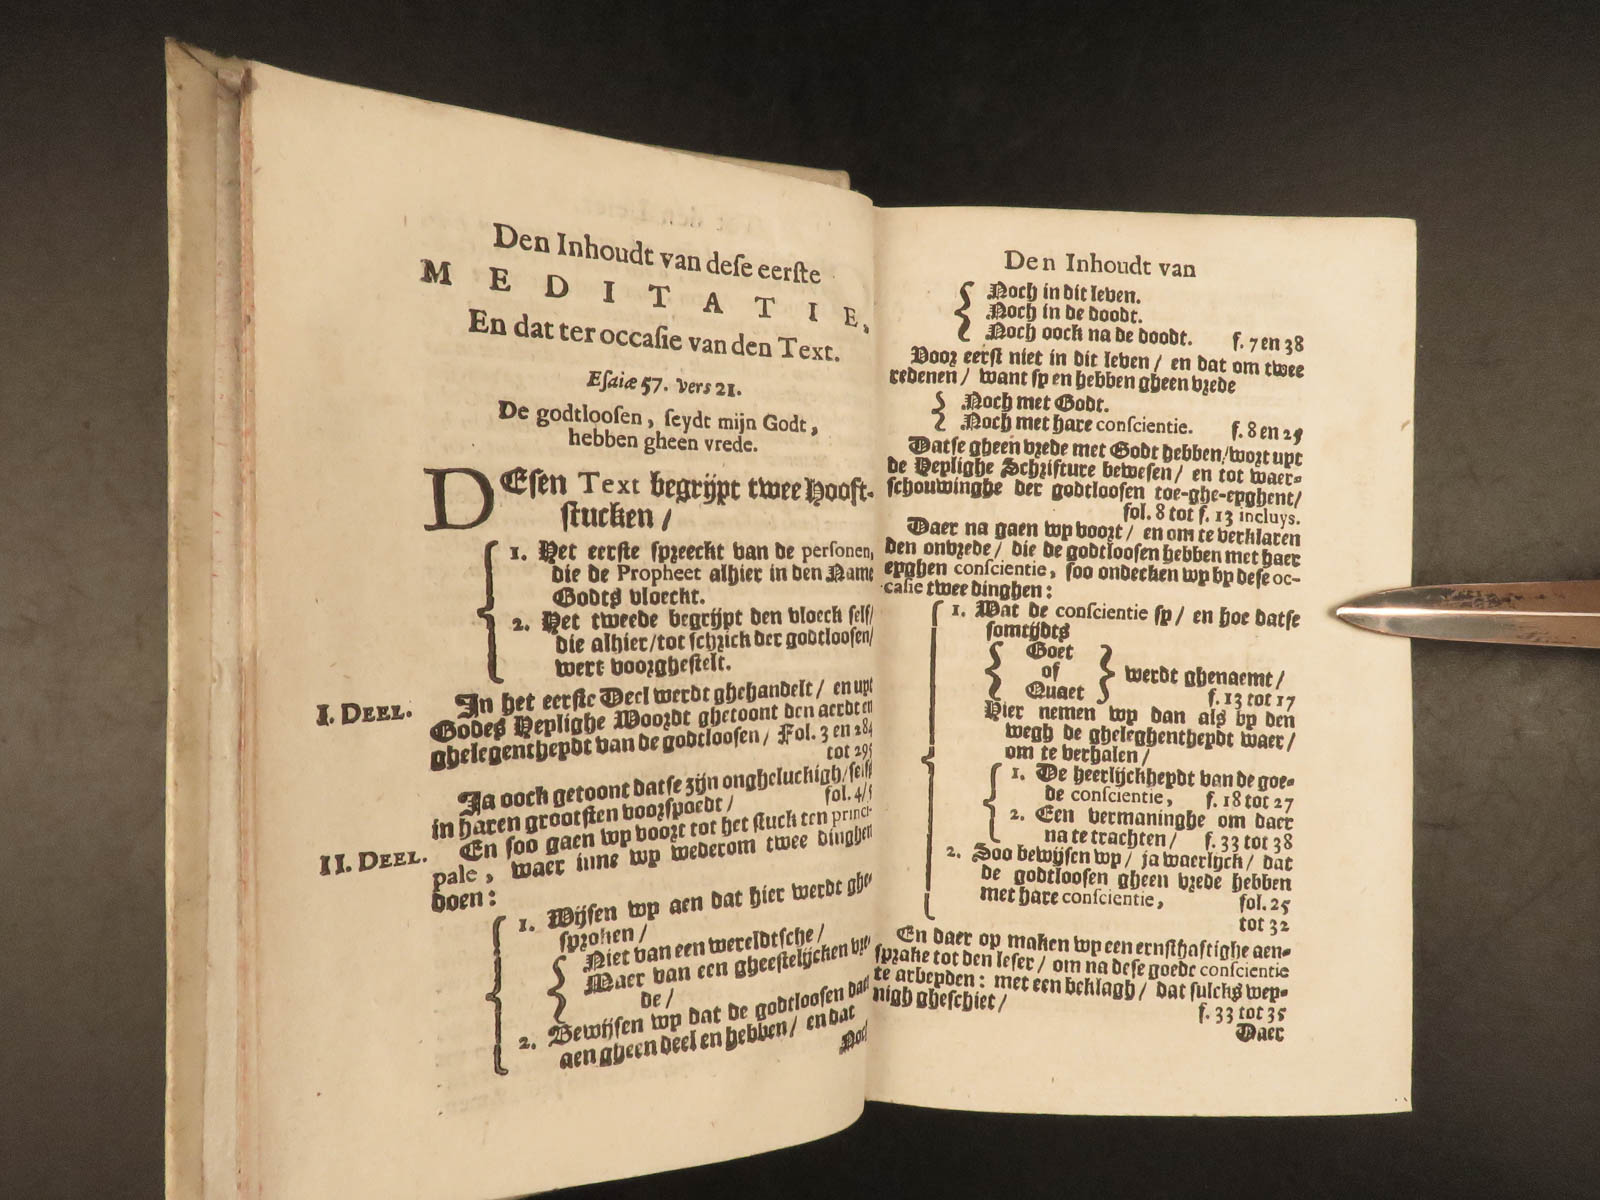 Den Inhoudt van dese eerste
MEDITATIE,
En dat ter occasie van den Text.
Esaiæ 57. vers 21.
De godtloosen, seydt mijn Godt,
hebben gheen vrede.
DEsen Text begrijpt twee Hooft-
stucken /
1. Het eerste spreeckt van de personen,
die de Propheet alhier in den Name
Godts vloeckt.
2. Het tweede begrijpt den vloeck self/
die alhier/tot schrick der godtloosen/
wert voorghestelt.
I. DEEL.
In het eerste Deel werdt ghehandelt / en uyt
Godes Heylighe Woordt ghetoont den aerdt en
ghelegentheydt van de godtloosen / Fol. 3 en 284
tot 295
Ja oock getoont datse zijn ongheluckigh/self
in haren grootsten voorspoedt / fol. 4/5
II. DEEL.
En soo gaen wy voort tot het stuck ten princi-
pale, waer inne wy wederom twee dinghen
doen:
1. Wijsen wy aen dat hier werdt ghe-
sproken /
Niet van een wereldtsche /
Maer van een gheestelijcken vre-
de /
2. Bewijsen wy dat de godtloosen daer
aen gheen deel en hebben / en dat
Noch
Den Inhoudt van
Noch in dit leven.
Noch in de doodt.
Noch oock na de doodt. f. 7 en 38
Voor eerst niet in dit leven / en dat om twee
redenen / want sy en hebben gheen vrede
Noch met Godt.
Noch met hare conscientie. f. 8 en 25
Datse gheen vrede met Godt hebben/wort uyt
de Heylighe Schrifture bewesen / en tot waer-
schouwinghe der godtloosen toe-ghe-eyghent/
fol. 8 tot f. 13 incluys.
Daer na gaen wy voort / en om te verklaren
den onvrede / die de godtloosen hebben met haer
eyghen conscientie, soo ondecken wy by dese oc-
casie twee dinghen:
1. Wat de conscientie sy / en hoe datse
somtijdts
Goet
of
Quaet
werdt ghenaemt /
f. 13 tot 17
Hier nemen wy dan als by den
wegh de gheleghentheydt waer /
om te verhalen /
1. De heerlijckheydt van de goe-
de conscientie, f. 18 tot 27
2. Een vermaninghe om daer
na te trachten / f. 33 tot 38
2. Soo bewijsen wy / ja waerlijck / dat
de godtloosen gheen vrede hebben
met hare conscientie, fol. 25
tot 32
En daer op maken wy een ernsthaftighe aen-
sprake tot den leser / om na dese goede conscientie
te arbeyden: met een beklagh / dat sulcks wey-
nigh gheschiet / f. 33 tot 35
Daer